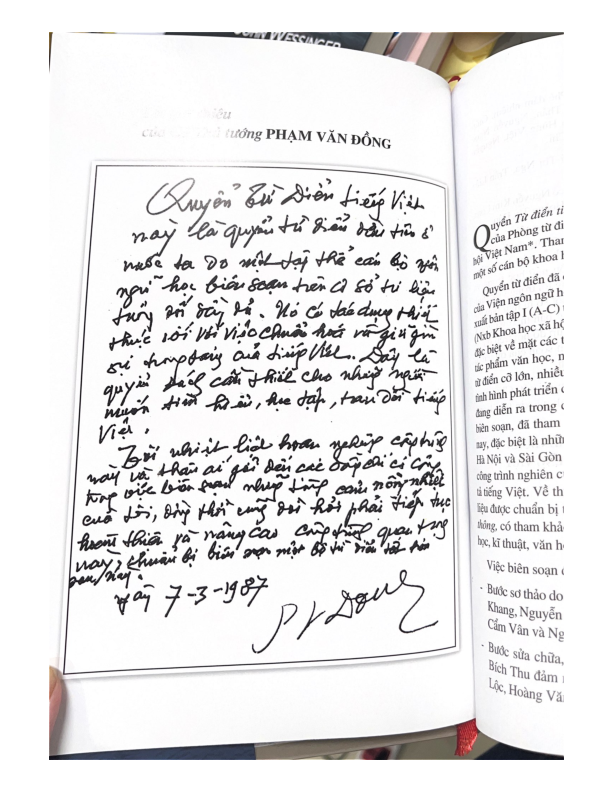 JOHN WESSINGER
của tướng PHẠM VĂN ĐỒNG
Quyển Từ Điển tiếng Việt
này là quyển từ điển đầu tiên ở
nước ta do một tập thể cán bộ ngôn
ngữ học biên soạn trên cơ sở tư liệu
tương đối đầy đủ. Nó có tác dụng thiết
thực đối với việc chuẩn hoá và giữ gìn
sự trong sáng của tiếng Việt. Đây là
quyển sách cần thiết cho những người
muốn tìm hiểu, học tập, trau dồi tiếng
Việt.
Tôi nhiệt liệt hoan nghênh công trình
này và thân ái gửi đến các đồng chí có công
trong việc biên soạn những tình cảm nồng nhiệt
của tôi, đồng thời cũng đòi hỏi phải tiếp tục
hoàn thiện và nâng cao công trình quan trọng
này, chuẩn bị biên soạn một bộ từ điển tốt hơn
sau này.
ngày 7-3-1987
PV Dong
Quyển Từ điển ti
của Phòng từ đi
hội Việt Nam*. Tham
một số cán bộ khoa h
Quyển từ điển đã
của Viện ngôn ngữ h
xuất bản tập I (A-C)
(Nxb Khoa học xã hộ
đặc biệt về mặt các t
tác phẩm văn học, n
từ điển cỡ lớn, nhiều
tình hình phát triển c
đang diễn ra trong c
biên soạn, đã tham
nay, đặc biệt là nhữn
Hà Nội và Sài Gòn
công trình nghiên cứ
tả tiếng Việt. Về th
liệu được chuẩn bị t
thông, có tham khảo
học, kĩ thuật, văn h
Việc biên soạn
- Bước sơ thảo do
Khang, Nguyễn
Cẩm Vân và Ng
- Bước sửa chữa,
Bích Thu đảm
Lộc, Hoàng Vă